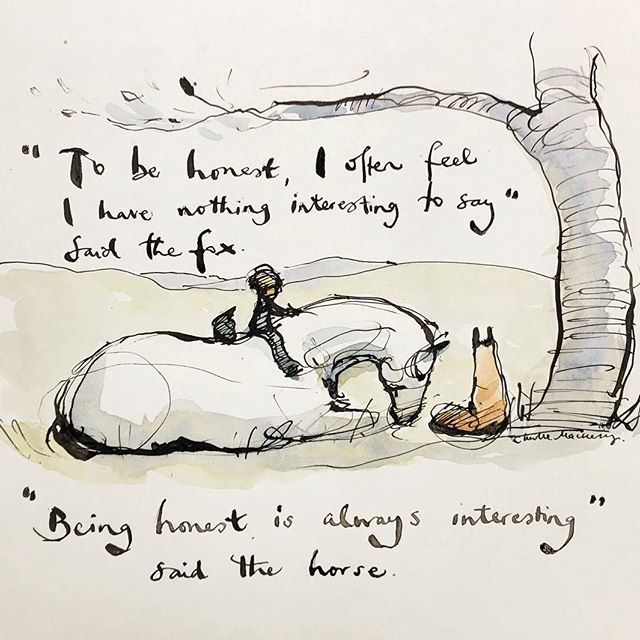 " To be honest, I often feel
I have nothing interesting to say"
said the fox.
Charlie Mackesy.
"Being honest is always interesting"
said the horse.